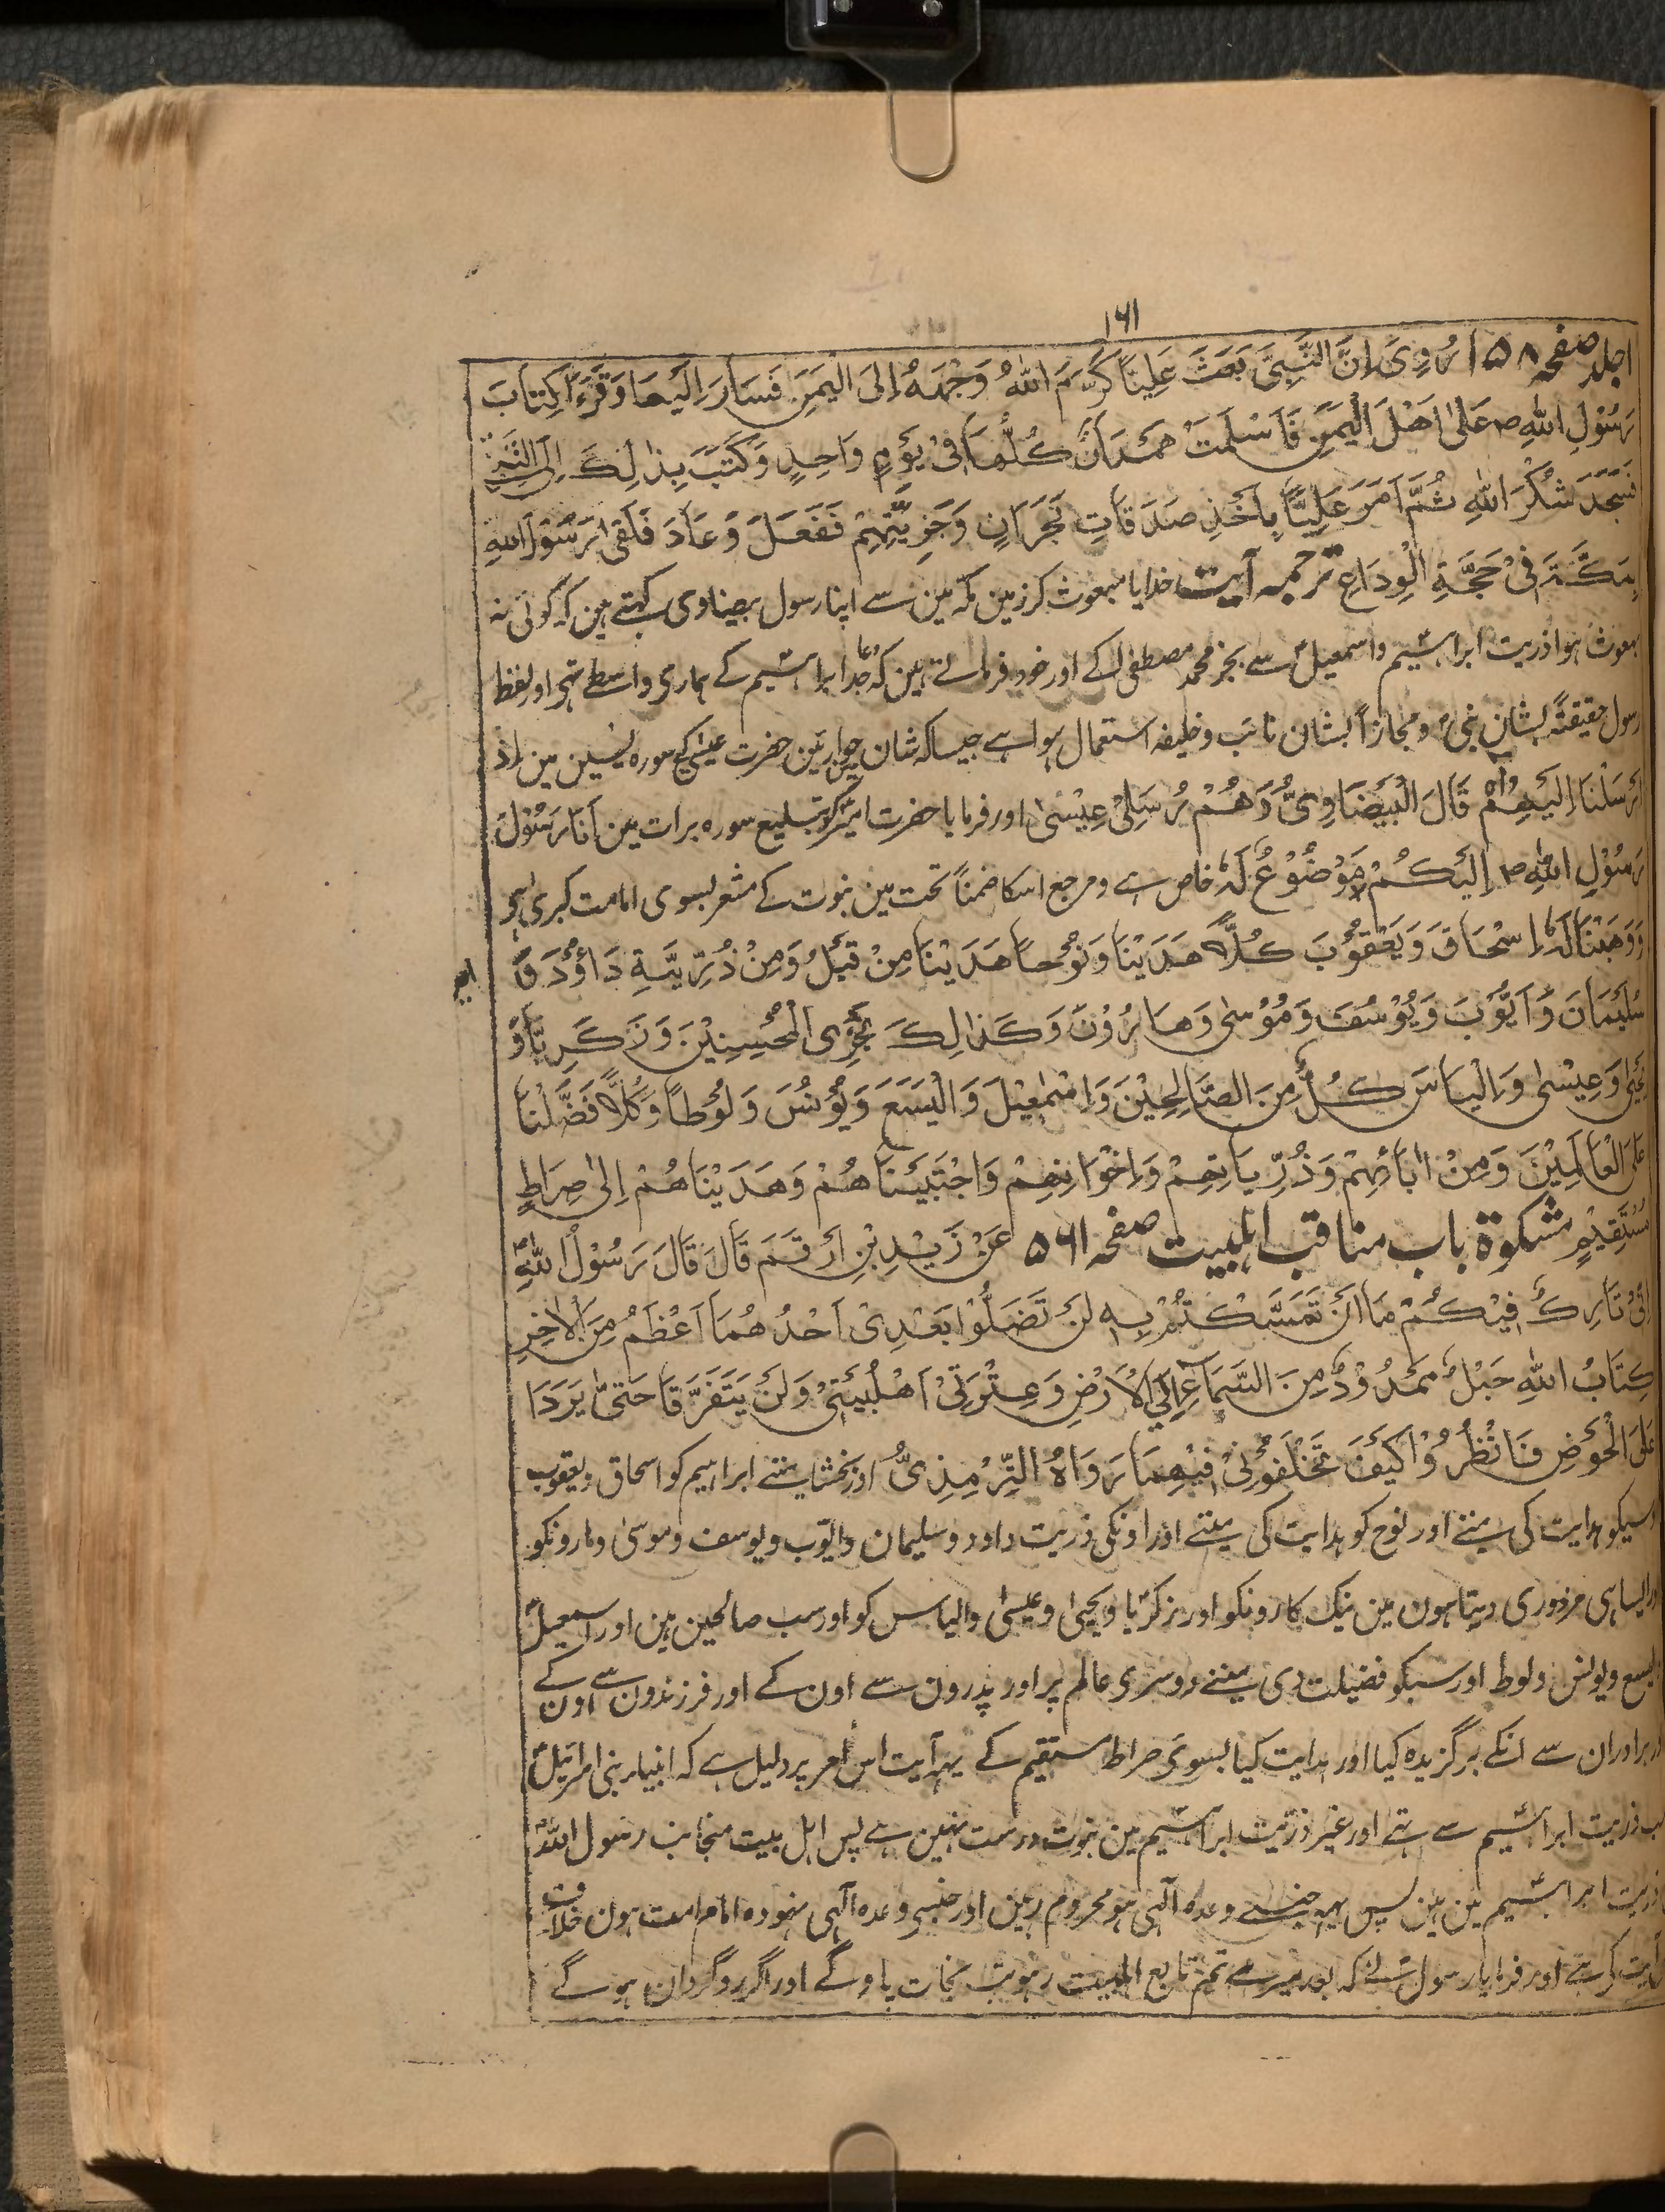 ۱۶۱
اجلد صفحہ ۱۵۸ رُوِیَ اِنَّ النَّبِیَّ بَعَثَ عَلِیًّا کَرَّمَ اللهُ وَجْهَهُ اِلَی الْیَمَنِ فَسَارَ اِلَیْهَا وَقَرَءَ کِتَابَ
رَسُوْلِ اللهِ ص عَلٰی اَهْلِ الْیَمَنِ فَاَسْلَمَتْ هَمْدَانُ کُلُّهَا فِیْ یَوْمٍ وَاحِدٍ وَکَتَبَ بِذٰلِكَ اِلَی النَّبِیِّ
فَسَجَدَ شُکْرَ اللهِ ثُمَّ اَمَرَ عَلِیًّا بِاَخْذِ صَدَقَاتِ نَجْرَانَ وَجَزِیَّتِهِمْ فَفَعَلَ وَعَادَ فَلَقٰی رَسُوْلَ اللهِ
بِمَکَّةَ فِیْ حَجَّةِ الْوِدَاعِ ترجمہ آیت خدایا مبعوث کر زمین مکہ مین سے اپنا رسول بیضاوی کہتے ہین کہ کوئی نہ
مبعوث ہوا ذریت ابراہیم و اسمعیل سے بجز محمد مصطفیٰ کے اور خود فرماتے ہین کہ دعا جد ابراہیم کے ہماری واسطے تہی اور لفظ
رسول حقیقتہً بشان نبی و مجازاً بشان نائب و خلیفہ استعمال ہوا ہے جیسا کہ شان حواریین حضرت عیسیٰ کی سورہ یٰسین مین اِذْ
اَرْسَلْنَا اِلَیْهِمْ قَالَ الْبَیْضَاوِیُّ وَهُمْ رُسُلِیْ عِیْسٰی اور فرمایا حضرت امیر کو تبلیغ سورہ برات مین اَنَا رَسُوْلُ
رَسُوْلِ اللهِ ص اِلَیْکُمْ مَوْضُوْعٌ لَهٗ خاص ہے و مرجع اسکا ضمناً تحت مین نبوت کے مشعر بسوی امامت کبریٰ ہی
وَوَهَبْنَا لَهٗ اِسْحَاقَ وَیَعْقُوْبَ کُلًّا هَدَیْنَا وَنُوْحًا هَدَیْنَا مِنْ قَبْلُ وَمِنْ ذُرِّیَّةِ دَاوٗدَ وَ
سُلَیْمَانَ وَاَیُّوْبَ وَیُوْسُفَ وَمُوْسٰی وَهَارُوْنَ وَکَذٰلِكَ نَجْزِی الْمُحْسِنِیْنَ وَزَکَرِیَّا وَ
یَحْیٰی وَعِیْسٰی وَاِلْیَاسَ کُلٌّ مِنَ الصَّالِحِیْنَ وَاِسْمٰعِیْلَ وَالْیَسَعَ وَیُوْنُسَ وَلُوْطًا وَکُلًّا فَضَّلْنَا
عَلَی الْعَالَمِیْنَ وَمِنْ اٰبَائِهِمْ وَذُرِّیَاتِهِمْ وَاِخْوَانِهِمْ وَاجْتَبَیْنَاهُمْ وَهَدَیْنَاهُمْ اِلٰی صِرَاطٍ
مُسْتَقِیْمٍ مشکوۃ باب مناقب اہلبیت صفحہ ۵۶۱ عَنْ زَیْدِ بْنِ اَرْقَمَ قَالَ قَالَ رَسُوْلُ اللهِ
اِنِّیْ تَارِكٌ فِیْکُمْ مَا اِنْ تَمَسَّکْتُمْ بِهٖ لَنْ تَضَلُّوْا بَعْدِیْ اَحَدُهُمَا اَعْظَمُ مِنَ الْاٰخِرِ
کِتَابُ اللهِ حَبْلٌ مَمْدُوْدٌ مِنَ السَّمَاءِ اِلَی الْاَرْضِ وَعِتْرَتِیْ اَهْلُبَیْتِیْ وَلَنْ یَتَفَرَّقَا حَتّٰی یَرِدَا
عَلَی الْحَوْضِ فَانْظُرُوْا کَیْفَ تَخْلُفُوْنِیْ فِیْهِمَا رَوَاهُ التِّرْمِذِیُّ اور بخشا ہمنے ابراہیم کو اسحاق و یعقوب
و سبکو ہدایت کی ہمنے اور نوح کو ہدایت کی ہمنے اور اونکی ذریت داود و سلیمان و ایوب و یوسف و موسیٰ و ہارونکو
اور ایسا ہی مزدوری دیتا ہون مین نیک کارونکو اور زکریا و یحییٰ و عیسیٰ و الیاس کو اور سب صالحین ہین اور اسمعیل
و الیسع و یونس و لوط اور سبکو فضیلت دی ہمنے دوسری عالم پر اور پدرون سے اون کے اور فرزندون سے اون کے
اور برادران سے انکے برگزیدہ کیا اور ہدایت کیا بسوی صراط مستقیم کے یہہ آیت اس امر پر دلیل ہے کہ انبیاء بنی اسرائیل
سب ذریت ابراہیم سے تہے اور غیر ذریت ابراہیم مین نبوت درست نہین ہے پس اہل بیت منجانب رسول اللہ
ذریت ابراہیم مین ہین پس یہہ جنسے وعدہ الٰہی ہو محروم رہین اور جنسے وعدہ الٰہی نہو وہ امام امت ہون خلاف
آیت کرتے اور فرمایا رسول نے کہ بعد میرے تم تابع اہلبیت رہو نجات پاوگے اور اگر روگردان ہوگے